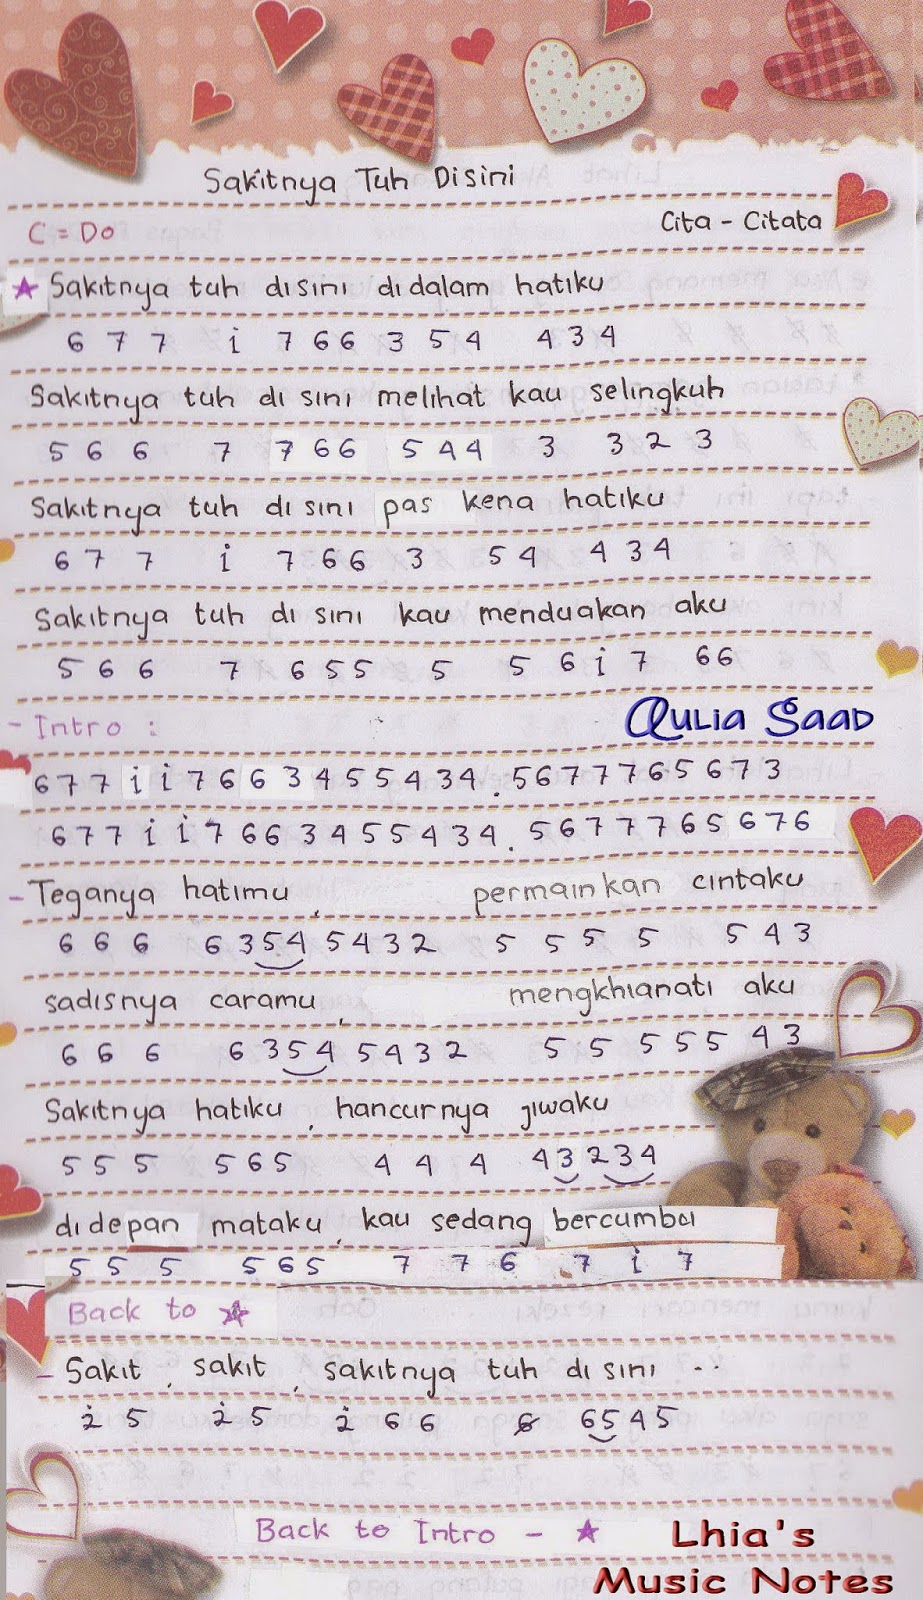 Sakitnya Tuh Disini
Cita - Citata
C = Do
★ Sakitnya tuh disini didalam hatiku
6 7 7 i 7 6 6 3 5 4 4 3 4
Sakitnya tuh di sini melihat kau selingkuh
5 6 6 7 7 6 6 5 4 4 3 3 2 3
Sakitnya tuh di sini pas kena hatiku
6 7 7 i 7 6 6 3 5 4 4 3 4
Sakitnya tuh di sini kau menduakan aku
5 6 6 7 6 5 5 5 5 6 i 7 6 6
- Intro :
Aulia Saad
6 7 7 i i 7 6 6 3 4 5 5 4 3 4 . 5 6 7 7 7 6 5 6 7 3
6 7 7 i i 7 6 6 3 4 5 5 4 3 4 . 5 6 7 7 7 6 5 6 7 6
- Teganya hatimu , permainkan cintaku
6 6 6 6 3 5 4 5 4 3 2 5 5 5 5 5 4 3
sadisnya caramu , mengkhianati aku
6 6 6 6 3 5 4 5 4 3 2 5 5 5 5 5 4 3
Sakitnya hatiku , hancurnya jiwaku
5 5 5 5 6 5 4 4 4 4 3 2 3 4
didepan mataku , kau sedang bercumbu
5 5 5 5 6 5 7 7 6 7 i 7
Back to ★
- Sakit , sakit , sakitnya tuh di sini ...
2̇ 5 2̇ 5 2̇ 6 6 6 6 5 4 5
Back to Intro - ★
Lhia's
Music Notes